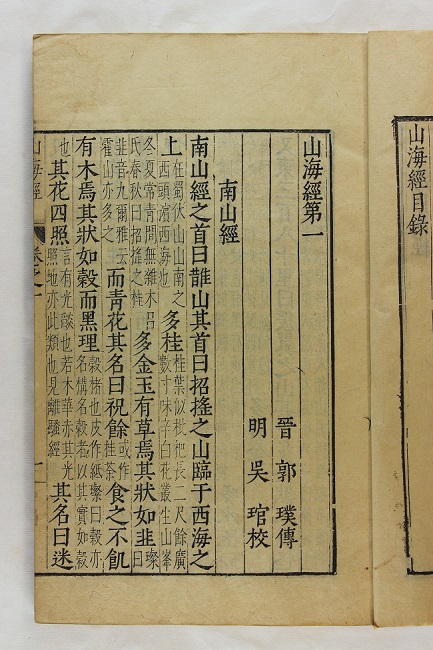 山海經目錄
山海經第一
晉郭璞傳
明吳琯校
南山經
南山經之首曰䧿山其首曰招搖之山臨于西海之
上在蜀伏山山南之西頭濵西海也多桂桂葉似枇杷長二尺餘廣數寸味辛白花叢生山峯
冬夏常青間無雜木呂氏春秋曰招搖之桂多金玉有草焉其狀如韭璨曰
韭音九爾雅云霍山亦多之而青花其名曰祝餘或作桂荼食之不飢
有木焉其狀如榖而黑理榖楮也皮作紙璨曰榖亦名構名榖者以其實如穀
也其花四照言有光燄也若木華赤其光照地亦此類也見離騷經其名曰迷
山海經 卷之一 一